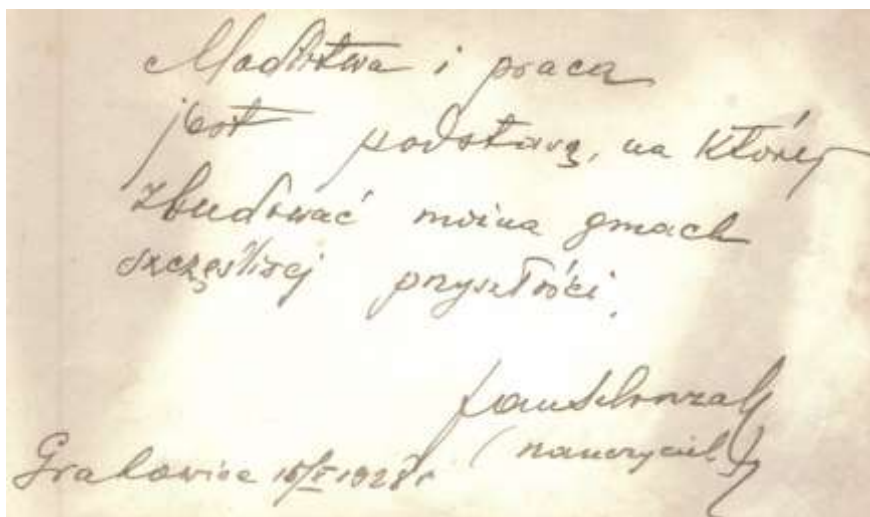 Modlitwa i praca
jest podstawą, na której
zbudować można gmach
szczęśliwej przyszłości.
Jan
(nauczyciel)
Grabowiec 15/X 1928 r